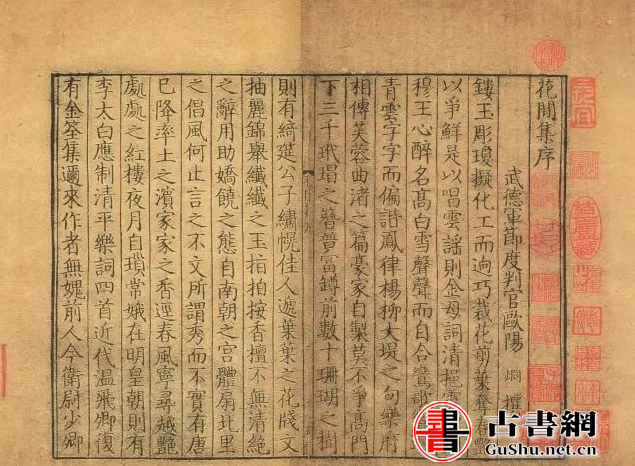 花間集序
武德軍節度判官歐陽 烱 撰
鏤玉彫瓊擬化工而迥巧裁花剪葉奪春
以爭鮮是以唱雲謠則金母詞清挹霞
穆王心醉名高白雪聲聲而自合鸞歌
青雲字字而偏諧鳳律楊柳大堤之句樂府
相傳芙蓉曲渚之篇豪家自製莫不爭高門
下三千玳瑁之簪富罇前數十珊瑚之樹
則有綺筵公子繡幌佳人遞葉葉之花牋文
抽麗錦舉纖纖之玉指拍按香檀不無清絶
之辭用助嬌饒之態自南朝之宮體扇北里
之倡風何止言之不文所謂秀而不實有唐
已降率土之濱家家之香逕春風寧尋越豔
處處之紅樓夜月自鎖常娥在明皇朝則有
李太白應制清平樂詞四首近代温飛卿復
有金筌集邇來作者無媿前人今衛尉少卿
書
古書網
GuShu.net.cn